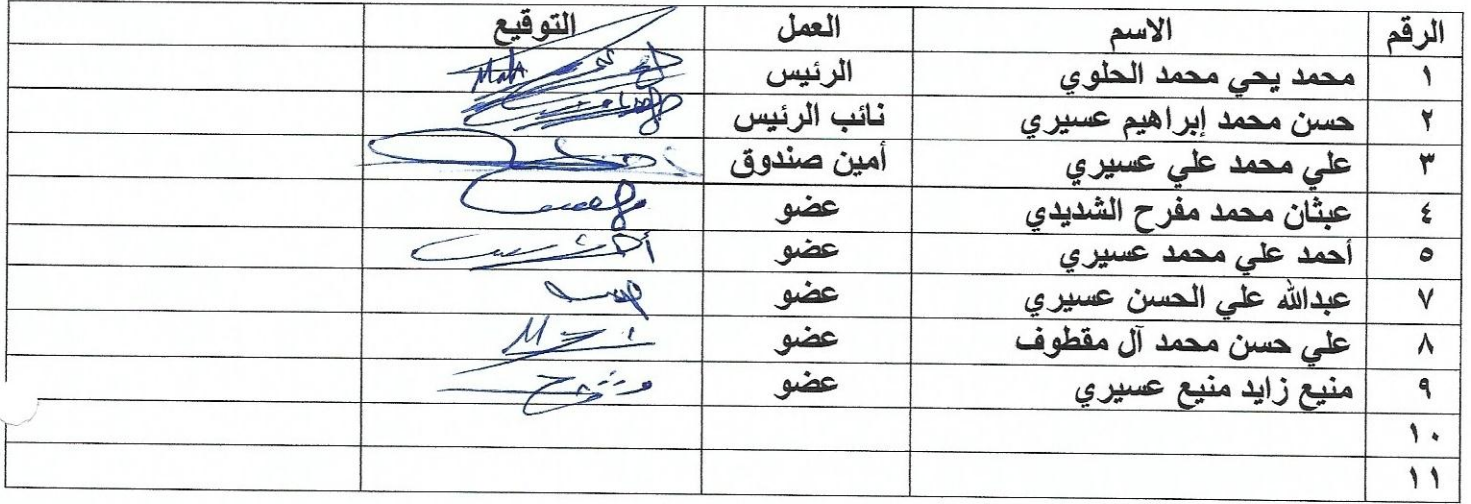 الرقم الاسم العمل التوقيع
١ محمد يحي محمد الحلوي الرئيس
٢ حسن محمد إبراهيم عسيري نائب الرئيس
٣ علي محمد علي عسيري أمين صندوق
٤ عبثان محمد مفرح الشديدي عضو
٥ أحمد علي محمد عسيري عضو
٧ عبدالله علي الحسن عسيري عضو
٨ علي حسن محمد آل مقطوف عضو
٩ منيع زايد منيع عسيري عضو
١٠
١١